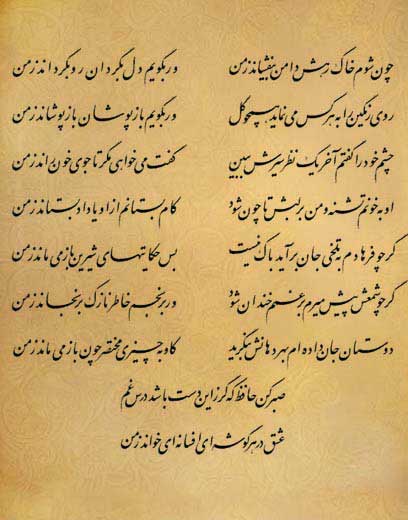 چون شوم خاک رهش دامن بیفشاند ز من ور بگویم دل بگردان رو بگرداند ز من
روی رنگین را به هر کس می نماید همچو گل ور بگویم باز پوشان باز پوشاند ز من
چشم خود را گفتم آخر یک نظر سیرش ببین گفت می خواهی مگر تا جوی خون راند ز من
او به خونم تشنه و من بر لبش تا چون شود کام بستانم از او یا داد بستاند ز من
گر چو فرهادم به تلخی جان برآید باک نیست بس حکایتهای شیرین باز می ماند ز من
گر چو شمعش پیش میرم بر غمم خندان شود ور برنجم خاطر نازک برنجاند ز من
دوستان جان داده ام بهر دهانش بنگرید کاو به چیزی مختصر چون باز می ماند ز من
صبر کن حافظ که گر زاین دست باشد درس غم
عشق در هر گوشه ای افسانه ای خواند ز من